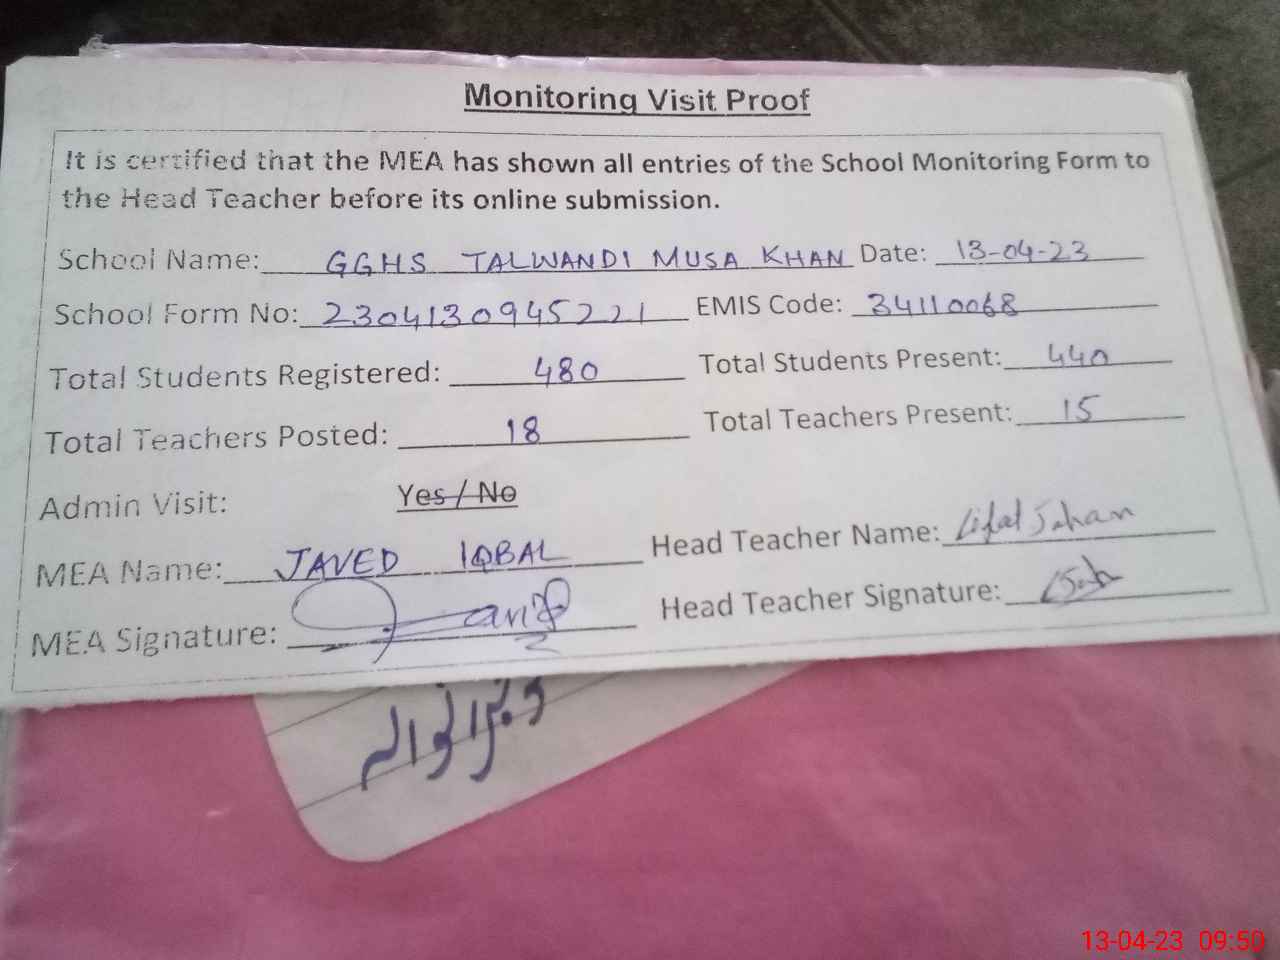 Monitoring Visit Proof
It is certified that the MEA has shown all entries of the School Monitoring Form to
the Head Teacher before its online submission.
School Name: GGHS TALWANDI MUSA KHAN Date: 13-04-23
School Form No: 2304130945221 EMIS Code: 34110068
Total Students Registered: 480 Total Students Present: 440
Total Teachers Posted: 18 Total Teachers Present: 15
Admin Visit: Yes / No
MEA Name: JAVED IQBAL Head Teacher Name: Jahan
MEA Signature: Head Teacher Signature:
13-04-23 09:50